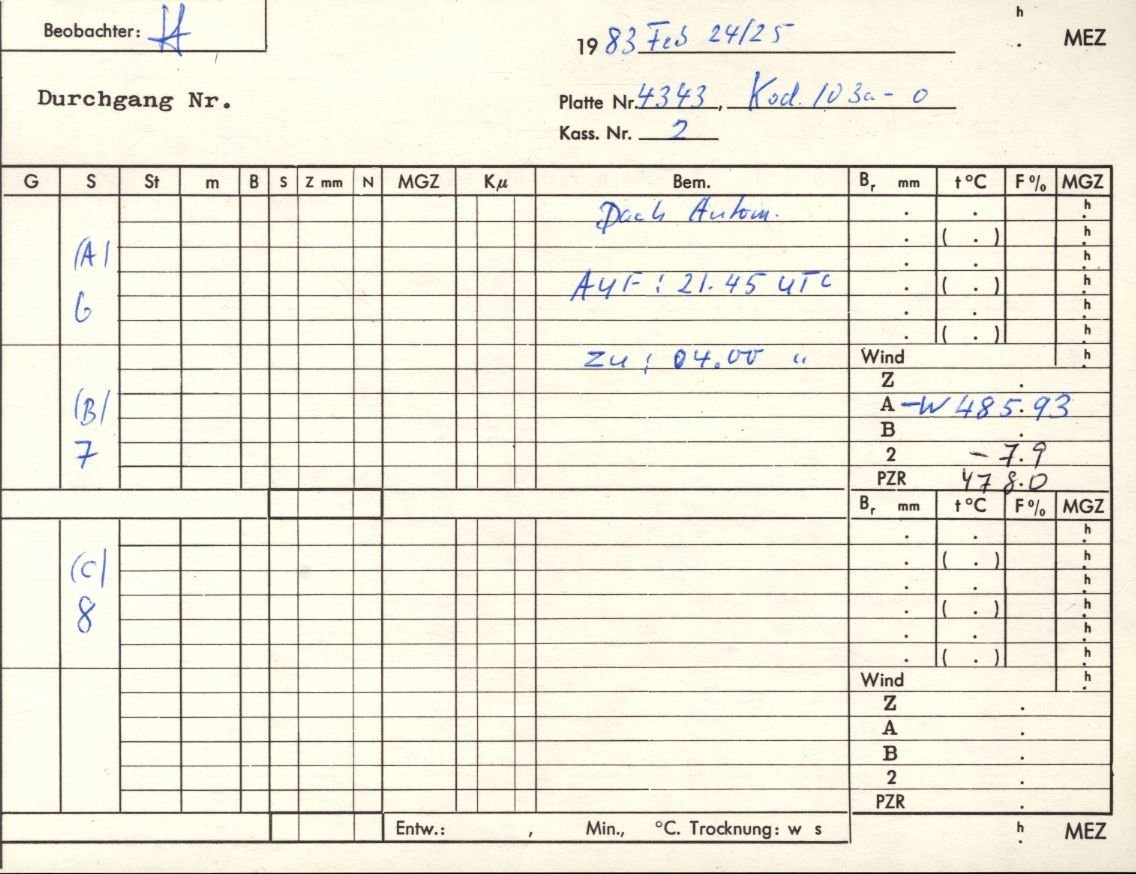 Beobachter: H
h
. MEZ
19 83 Feb 24/25
Durchgang Nr.
Platte Nr. 4343, Kod. 103a-0
Kass. Nr. 2
G S St m B S Z mm N MGZ Kμ Bem. Br mm t °C F % MGZ
Dach Autom. . . h
(A) . ( . ) h
. . h
6 AUF : 21.45 UTC . ( . ) h
. . h
. ( . ) h
zu : 04.00 " Wind h
Z .
(B) A -W 485.93
B .
7 2 - 7.9
PZR 478.0
Br mm t °C F % MGZ
. . h
(C) . ( . ) h
. . h
8 . ( . ) h
. . h
. ( . ) h
Wind h
Z .
A .
B .
2 .
PZR .
Entw.: , Min., °C. Trocknung: w s
h
. MEZ